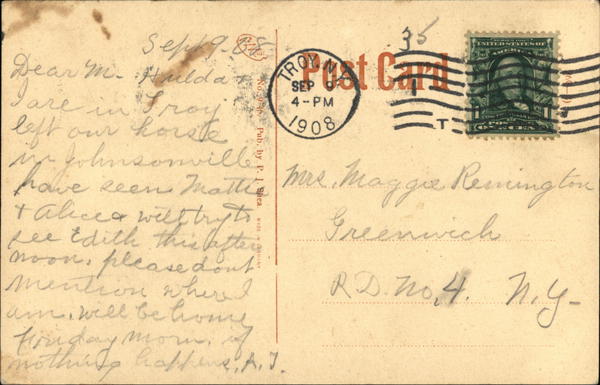 Sept 9 08
Dear M. Hulda
I are in Troy
left our horse
in Johnsonville
have seen Mattie
& Alice & will try to
see Edith this after
noon. please dont
mention where I
am. will be home
Friday morn. if
nothing happens. A. J.
Post Card
35
TROY, N.Y.
SEP 9
4-PM
1908
T
UNITED STATES OF AMERICA
1 ONE CENT 1
Mrs. Maggie Remington
Greenwich
R.D. No. 4. N.Y-
Pub. by P.